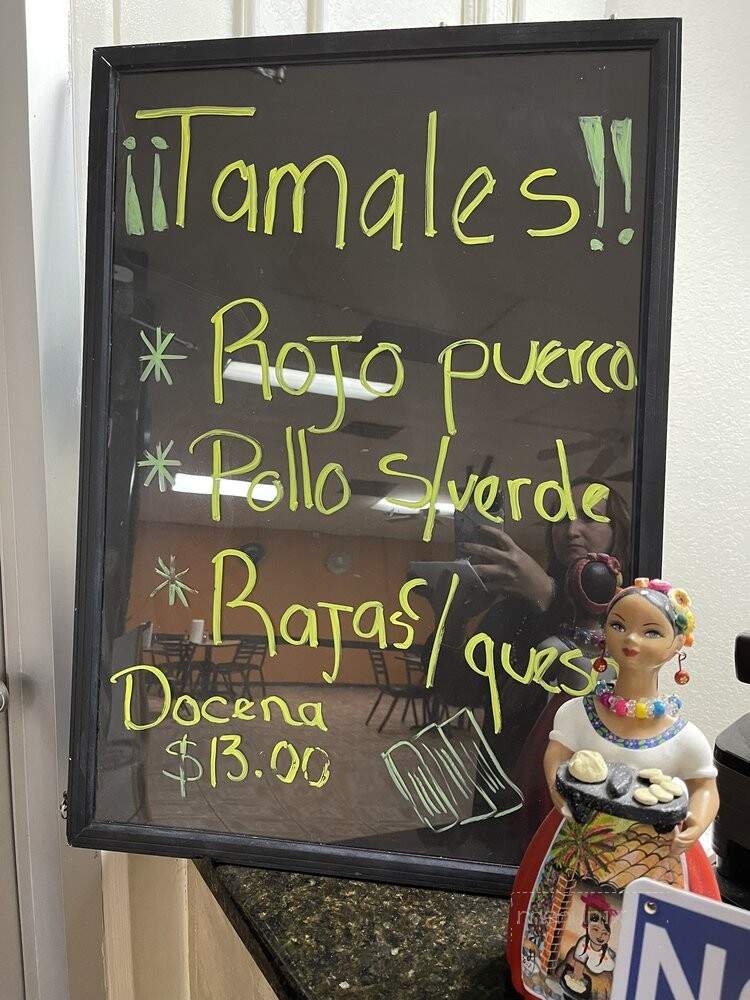 ¡¡Tamales!!
* Rojo puerco
* Pollo s/verde
* Rajas c/ques
Docena
$13.00